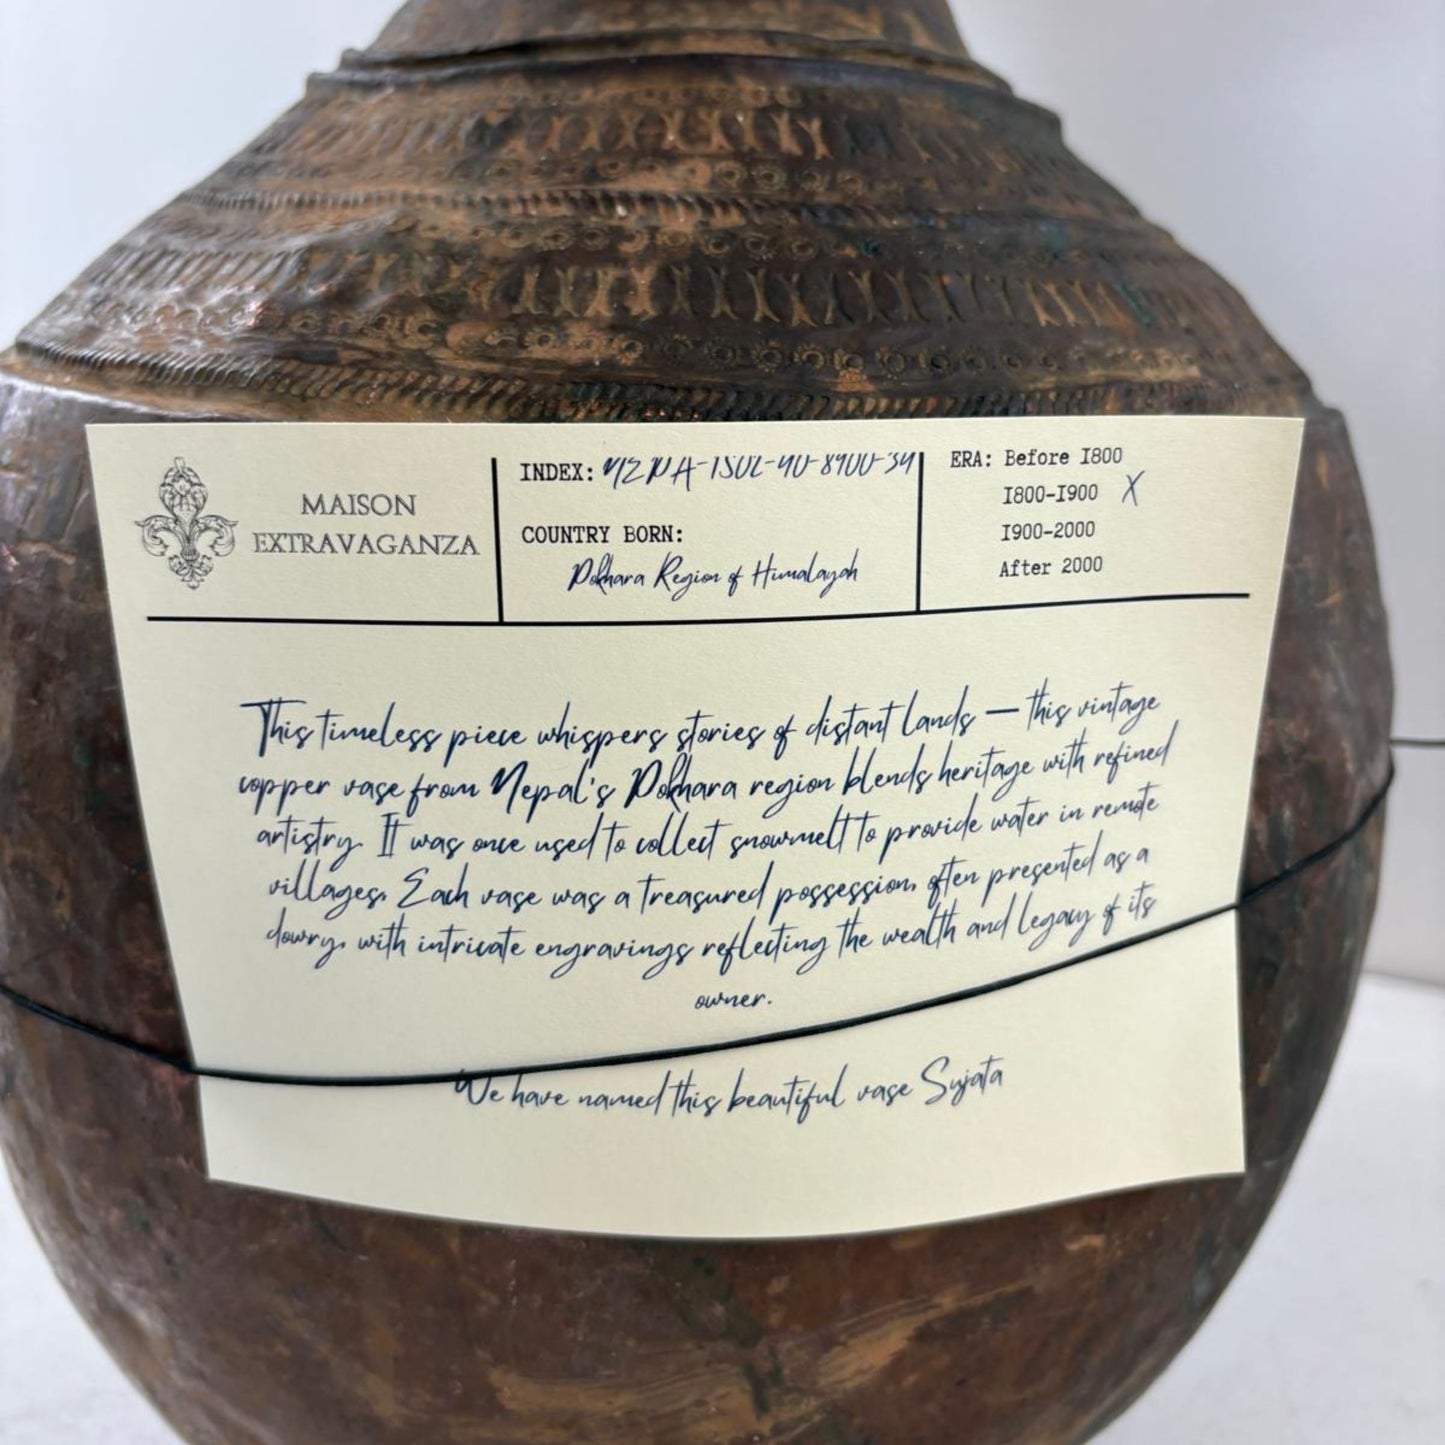 MAISON
EXTRAVAGANZA
INDEX:
COUNTRY BORN:
Pokhara Region of Himalayah
ERA: Before 1800
1800-1900 X
1900-2000
After 2000
This timeless piece whispers stories of distant lands — this vintage
copper vase from Nepal's Pokhara region blends heritage with refined
artistry. It was once used to collect snowmelt to provide water in remote
villages. Each vase was a treasured possession, often presented as a
dowry, with intricate engravings reflecting the wealth and legacy of its
owner.
We have named this beautiful vase Sujata